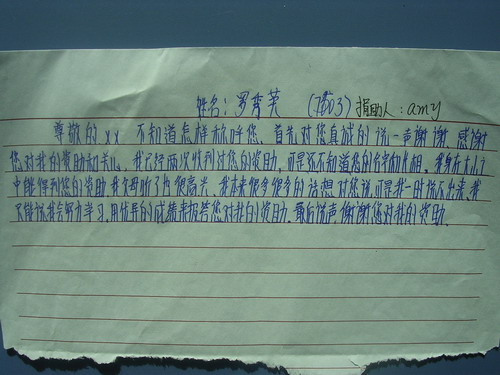 姓名：罗秀芙 (7803) 捐助人：amy
尊敬的xx 不知道怎样称呼您，首先对您真诚的说一声谢谢，感谢
您对我的资助和关心，我已经两次收到对您的资助，可是还不知道您的名字和真相，我身在大山之
中能得到您的资助，我父母听了也很高兴，我本来很多很多的话想对您说，可是我一时指不出来，我
只能说我会努力学习，用优异的成绩来报答您对我的资助，最后说声谢谢您对我的资助。